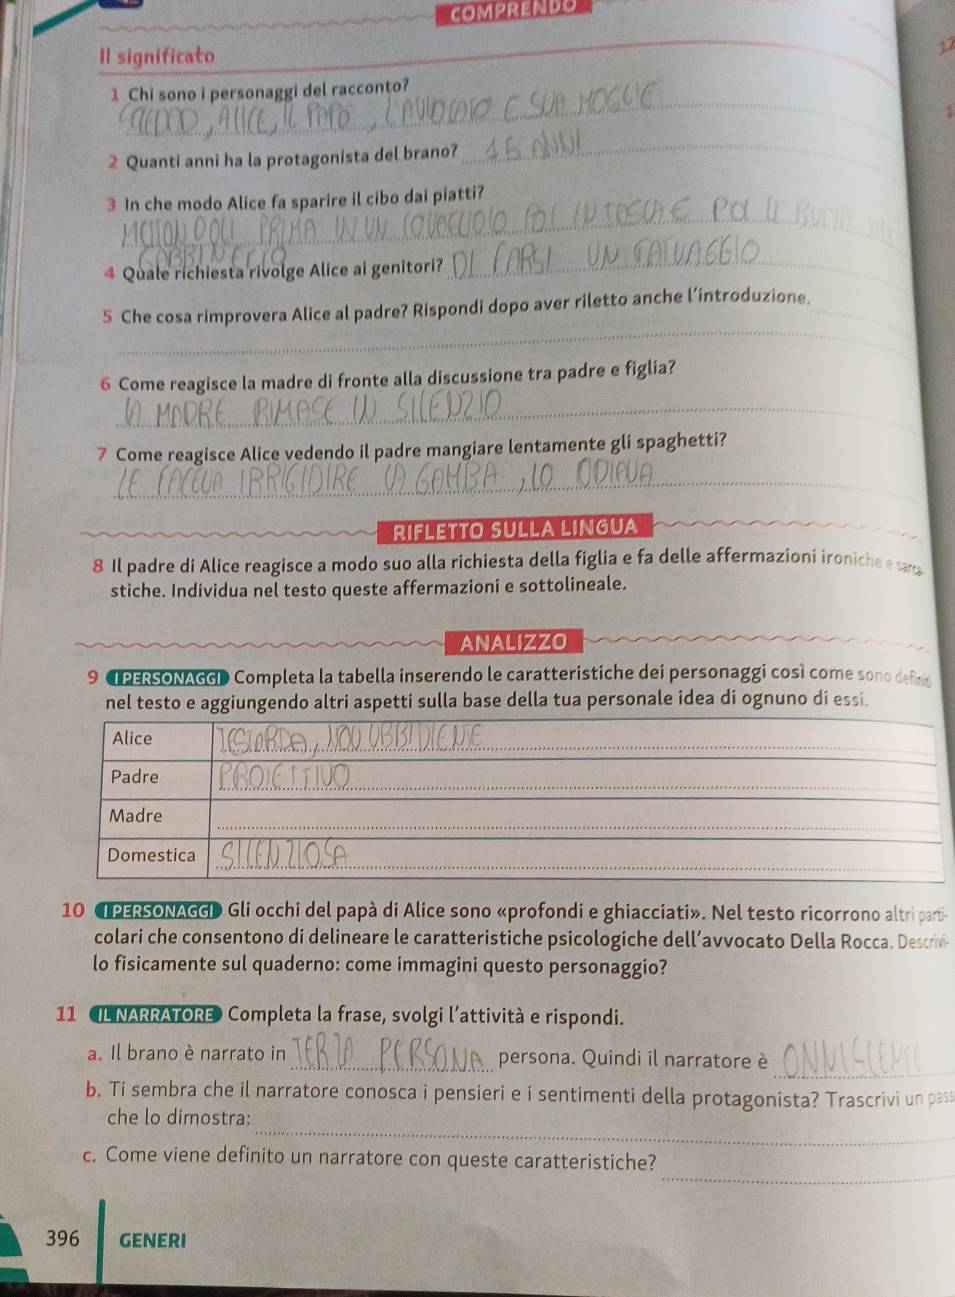 COMPRENDO
Il significato
12
1 Chi sono i personaggi del racconto?
, ALICE, IL PAPÀ, L'AVVOCATO E SUA MOGLIE
2 Quanti anni ha la protagonista del brano? 15 ANNI
3 In che modo Alice fa sparire il cibo dai piatti?
PRIMA IN UN TOVAGLIOLO POI IN TASCA E POI LI BUTTA
4 Quale richiesta rivolge Alice ai genitori? DI FARSI UN TATUAGGIO
5 Che cosa rimprovera Alice al padre? Rispondi dopo aver riletto anche l'introduzione.
6 Come reagisce la madre di fronte alla discussione tra padre e figlia?
LA MADRE RIMASE IN SILENZIO
7 Come reagisce Alice vedendo il padre mangiare lentamente gli spaghetti?
LE FACEVA IRRIGIDIRE LA GAMBA, LO ODIAVA
RIFLETTO SULLA LINGUA
8 Il padre di Alice reagisce a modo suo alla richiesta della figlia e fa delle affermazioni ironiche e sarca
stiche. Individua nel testo queste affermazioni e sottolineale.
ANALIZZO
9 I PERSONAGGI Completa la tabella inserendo le caratteristiche dei personaggi così come sono definiti
nel testo e aggiungendo altri aspetti sulla base della tua personale idea di ognuno di essi.
Alice TESTARDA, NON UBBIDIENTE
Padre PROTETTIVO
Madre
Domestica SILENZIOSA
10 I PERSONAGGI Gli occhi del papà di Alice sono «profondi e ghiacciati». Nel testo ricorrono altri parti-
colari che consentono di delineare le caratteristiche psicologiche dell'avvocato Della Rocca. Descrivi-
lo fisicamente sul quaderno: come immagini questo personaggio?
11 IL NARRATORE Completa la frase, svolgi l'attività e rispondi.
a. Il brano è narrato in TERZA PERSONA persona. Quindi il narratore è ONNISCENTE
b. Ti sembra che il narratore conosca i pensieri e i sentimenti della protagonista? Trascrivi un pass
che lo dimostra:
c. Come viene definito un narratore con queste caratteristiche?
396 GENERI